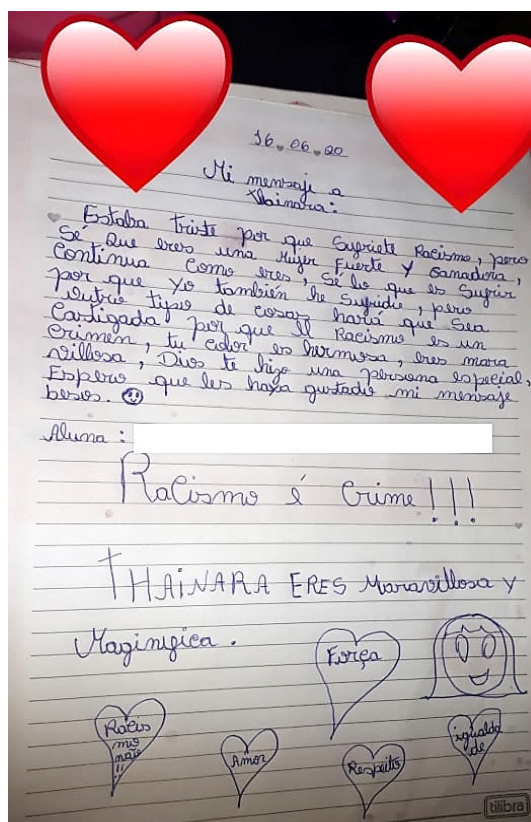 16.06.20
Mi mensaje a
thainara:
Estaba triste por que Sufriete Racismo, pero
Sé Que eres una Mujer Fuerte y Ganadora,
Continua Como eres, Sé lo que es Sufrir
por que yo también he Sufridie, pero
outro tipo de cosas hará que Sea
Castigada por que El Racismo es un
crimen, tu color es hermosa, eres mara
villosa, Dios te hizo una persona especial.
Espero que les haya gustado mi mensaje
besos.
Aluna:
Racismo é Crime!!!
THAINARA ERES Maravillosa y
Maginifica.
Força
Racis
mo
não
!!
Amor
Respeito
igualda
de
tilibra